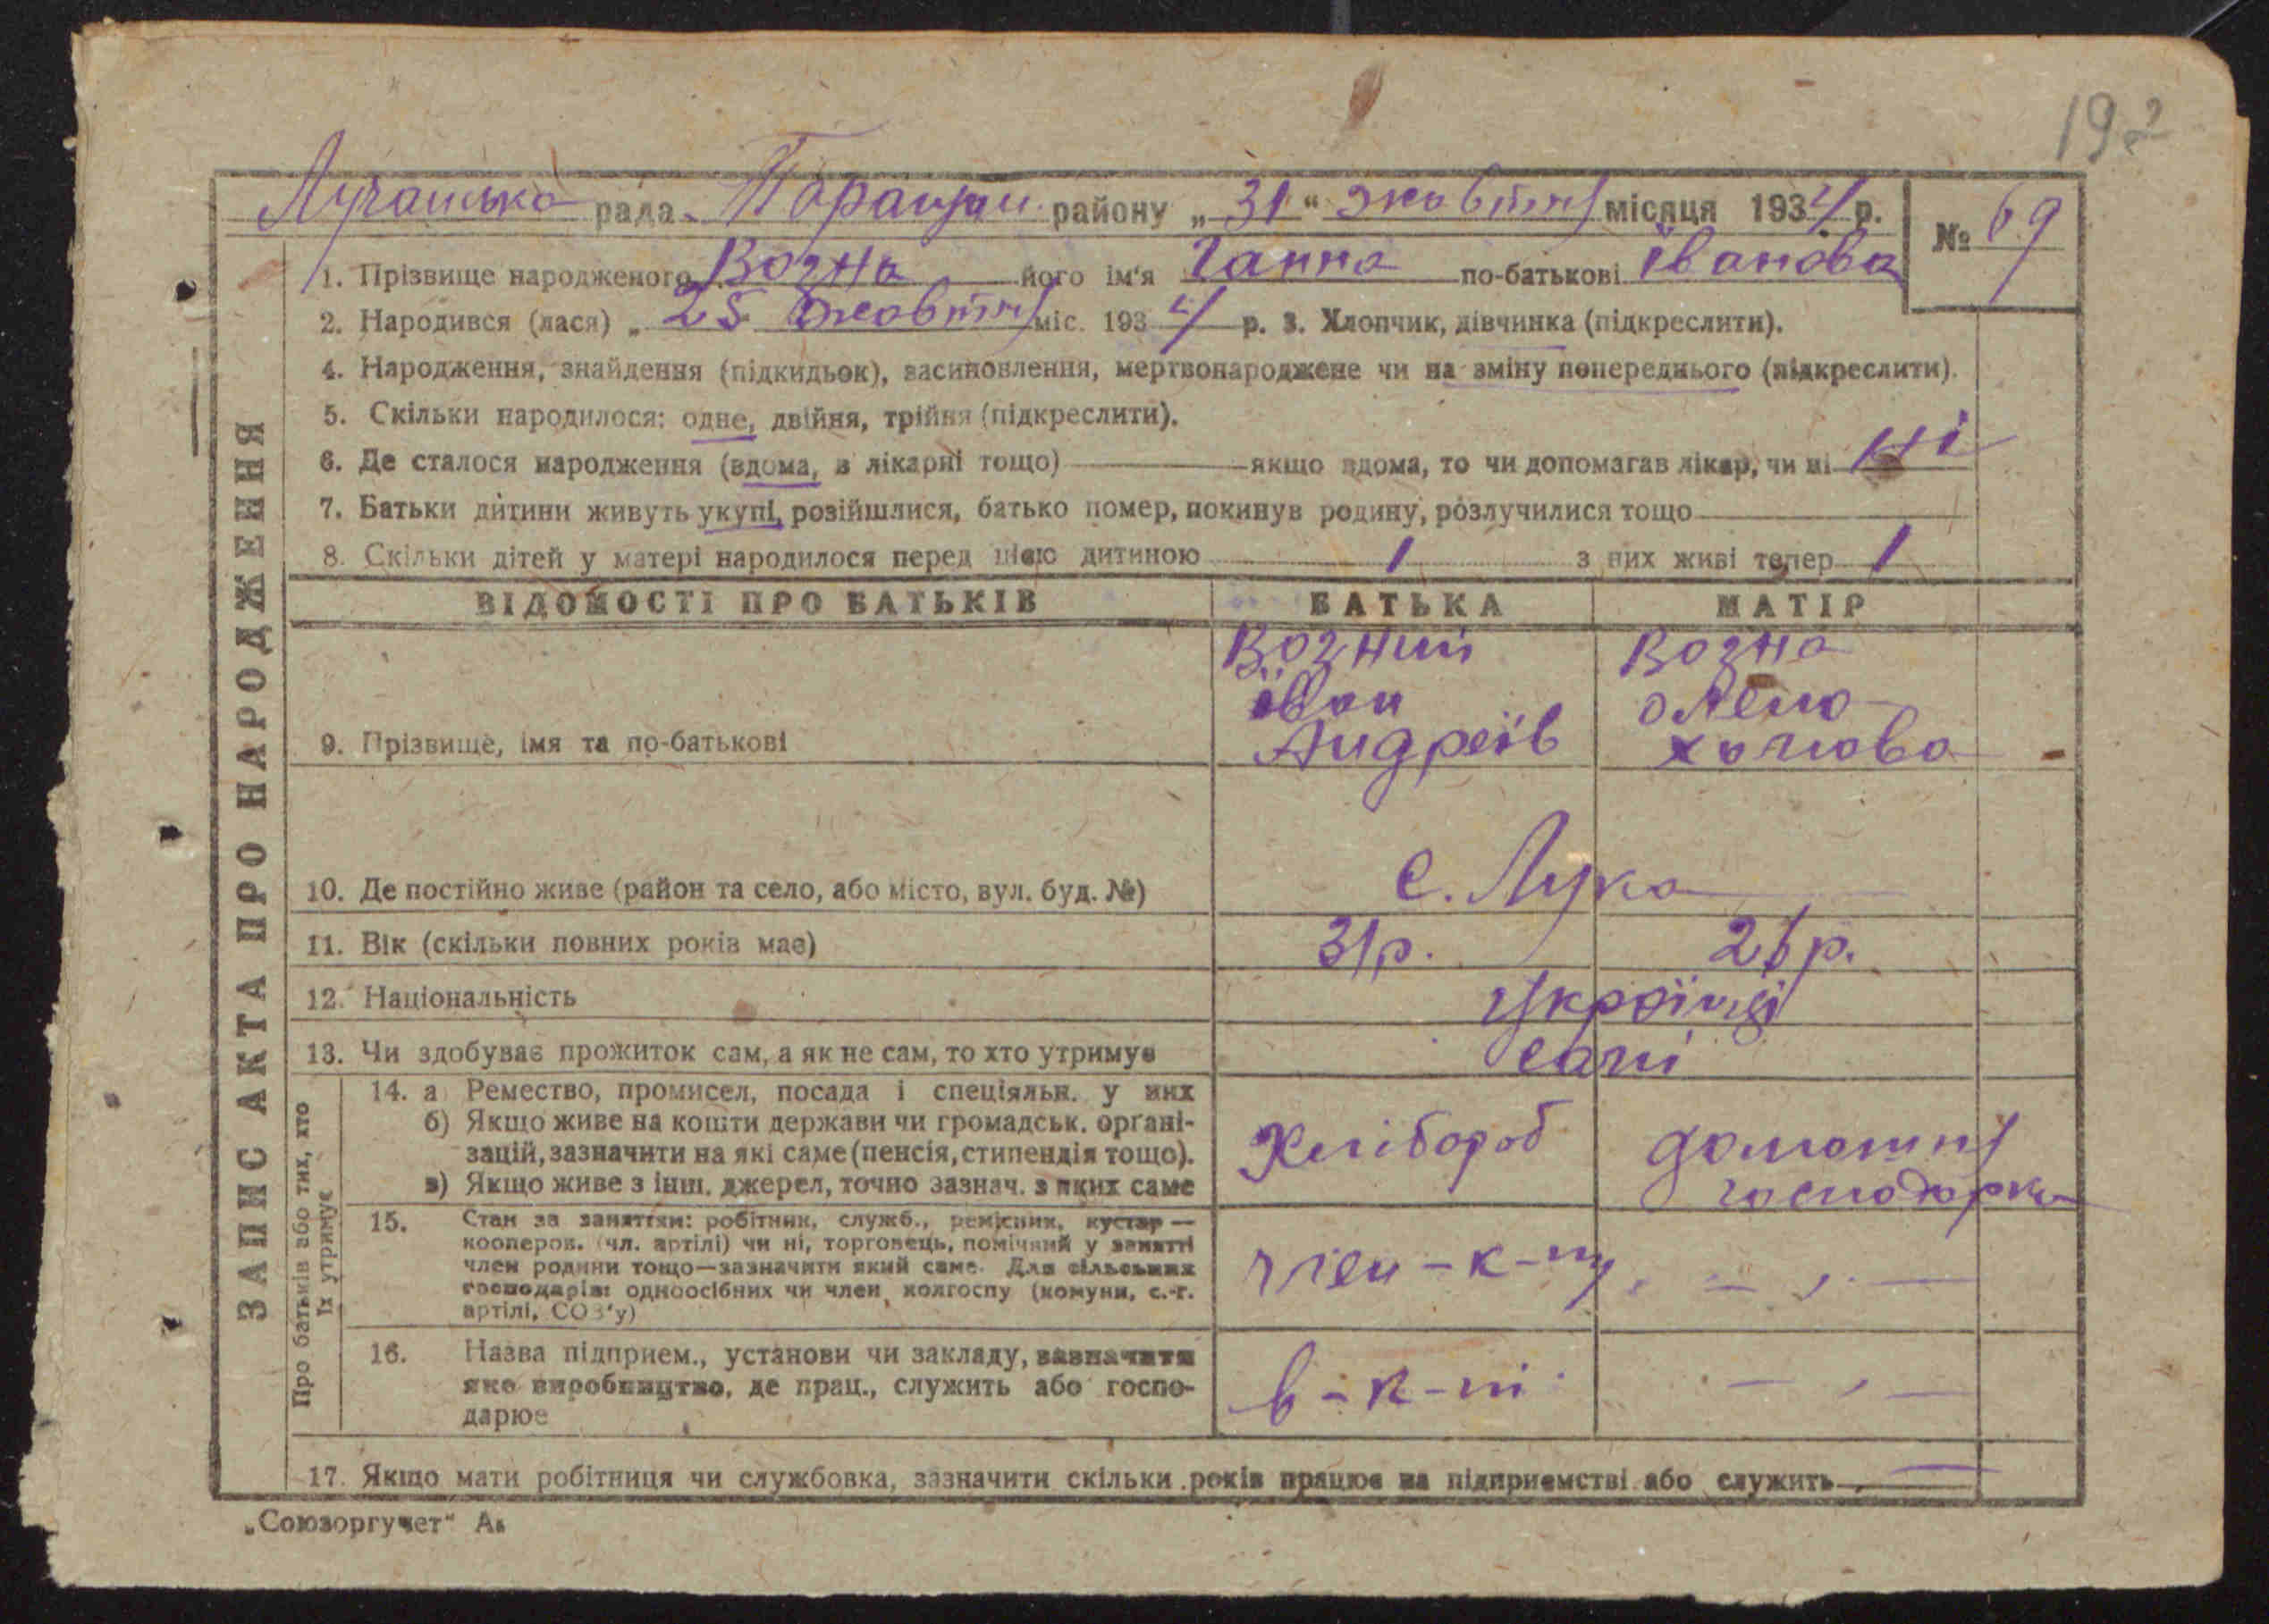 192
Лучанська рада Таращан. району „31“ жовтня місяця 1934 р. № 69
1. Прізвище народженого Возна його ім'я Ганна по-батькові Іванова
2. Народився (лася) „ 25 жовтня міс. 1934 р. 3. Хлопчик, дівчинка (підкреслити).
4. Народження, знайдення (підкидьок), засиновлення, мертвонароджене чи на зміну попереднього (підкреслити).
5. Скільки народилося: одне, двійня, трійня (підкреслити).
6. Де сталося народження (вдома, в лікарні тощо) якщо вдома, то чи допомагав лікар, чи ні ні
7. Батьки дитини живуть укупі, розійшлися, батько помер, покинув родину, розлучилися тощо
8. Скільки дітей у матері народилося перед цією дитиною 1 з них живі тепер 1
ЗАПИС АКТА ПРО НАРОДЖЕННЯ
ВІДОМОСТІ ПРО БАТЬКІВ БАТЬКА МАТІР
Возний Возна
Іван Олена
9. Прізвище, імя та по-батькові Андреїв
10. Де постійно живе (район та село, або місто, вул. буд. №) с. Лука
11. Вік (скільки повних років має) 31 р. 26 р.
12. Національність Українці
13. Чи здобуває прожиток сам, а як не сам, то хто утримує самі
Про батьків або тих, хто
їх утримує
14. а) Ремество, промисел, посада і спеціяльн. у них
б) Якщо живе на кошти держави чи громадськ. органі-
зацій, зазначити на які саме (пенсія, стипендія тощо). Хлібороб домашня
в) Якщо живе з інш. джерел, точно зазнач. з яких саме господарка
15. Стан за заняттям: робітник, служб., ремісник, кустар —
кооперов. (чл. артілі) чи ні, торговець, помічний у занятті
член родини тощо—зазначити який саме. Для сільських член-к-пу - „ -
господарів: одноосібних чи член колгоспу (комуни, с.-г.
артілі, СОЗ'у)
16. Назва підприєм., установи чи закладу, зазначити
яке виробництво, де прац., служить або госпо- в-к-пі - „ -
дарює
17. Якщо мати робітниця чи службовка, зазначити скільки років працює на підприємстві або служить
„Союзоргучет“